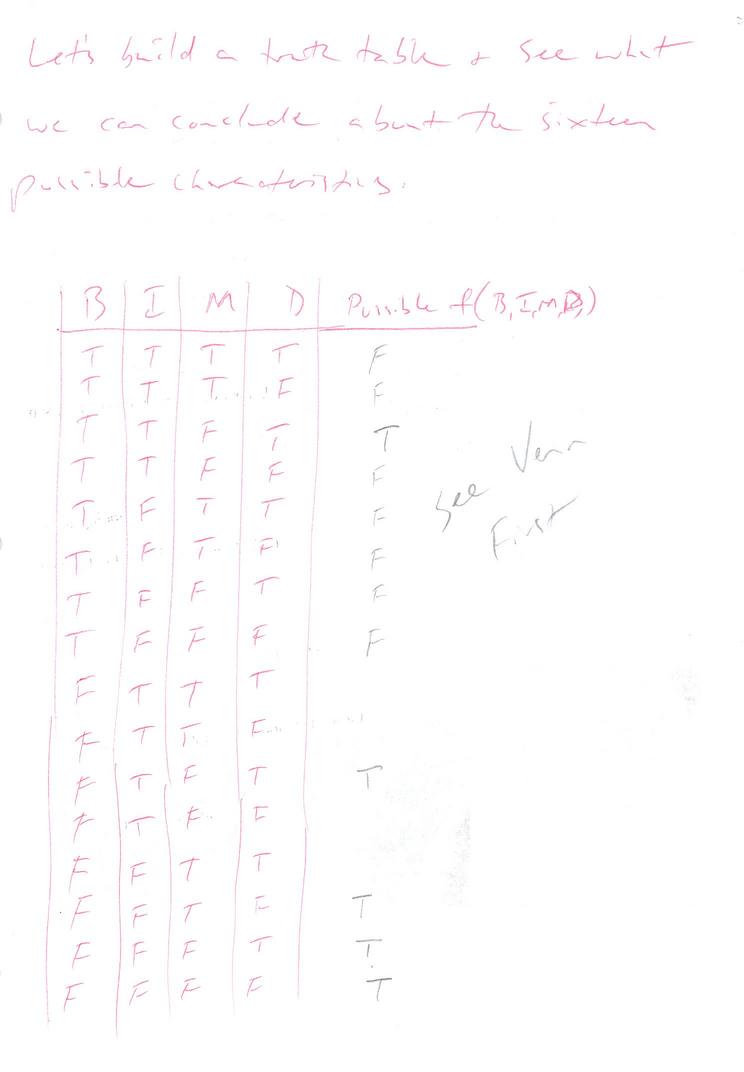 Let's build a truth table + see what
we can conclude about the sixteen
possible characteristics.
B I M D Possible f(B, I, M, D)
T T T T F
T T T F F
T T F T T
T T F F F
T F T T F
T F T F F
T F F T F
T F F F F
See Venn
First
F T T T
F T T F
F T F T T
F T F F
F F T T
F F T F T
F F F T T
F F F F T